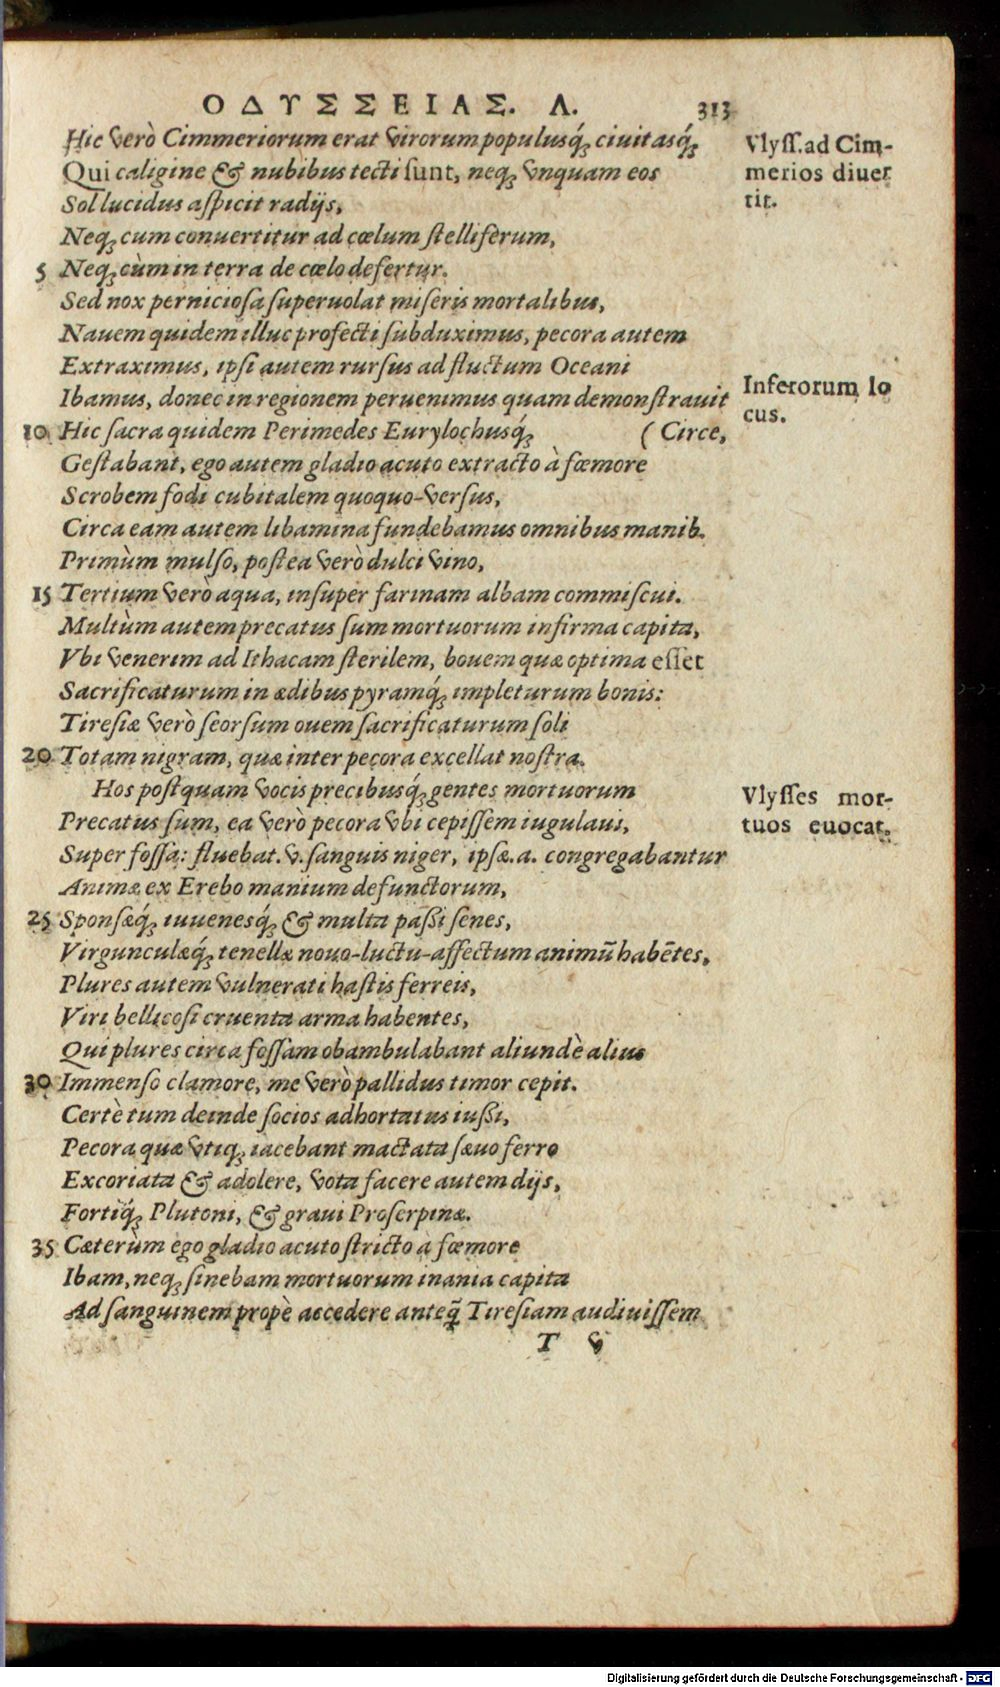 ΟΔΥΣΣΕΙΑΣ. Λ. 313
Hic verò Cimmeriorum erat virorum populusq́; ciuitasq́;
Qui caligine & nubibus tecti sunt, neq; vnquam eos
Sol lucidus aſpicit radijs,
Neq; cum conuertitur ad cœlum ſtelliferum,
5 Neq; cùm in terra de cœlo defertur.
Sed nox pernicioſa ſuperuolat miſeris mortalibus,
Nauem quidem illuc profecti ſubduximus, pecora autem
Extraximus, ipſi autem rurſus ad fluctum Oceani
Ibamus, donec in regionem peruenimus quam demonſtrauit
10 Hic ſacra quidem Perimedes Eurylochusq́; (Circe,
Geſtabant, ego autem gladio acuto extracto à fœmore
Scrobem fodi cubitalem quoquo-verſus,
Circa eam autem libamina fundebamus omnibus manib.
Primùm mulſo, poſtea verò dulci vino,
15 Tertium verò aqua, inſuper farinam albam commiſcui.
Multùm autem precatus ſum mortuorum infirma capita,
Vbi venerim ad Ithacam ſterilem, bouem quæ optima eſſet
Sacrificaturum in ædibus pyramq́; impleturum bonis:
Tireſiæ verò ſeorſum ouem ſacrificaturum ſoli
20 Totam nigram, quæ inter pecora excellat noſtra.
Hos poſtquam vocis precibusq́; gentes mortuorum
Precatus ſum, ea verò pecora vbi cepiſſem iugulaui,
Super foſſa: fluebat. v. ſanguis niger, ipſæ. a. congregabantur
Animæ ex Erebo manium defunctorum,
25 Sponſæq́; iuuenesq́; & multa paßi ſenes,
Virgunculæq́; tenellæ nouo-luctu-affectum animũ habẽtes,
Plures autem vulnerati haſtis ferreis,
Viri bellicoſi cruenta arma habentes,
Qui plures circa foſſam obambulabant aliundè alius
30 Immenſo clamore, me verò pallidus timor cepit.
Certè tum deinde ſocios adhortatus iußi,
Pecora quæ vtiq; iacebant mactata ſæuo ferro
Excoriata & adolere, vota facere autem dijs,
Fortiq́; Plutoni, & graui Proſerpinæ.
35 Cæterùm ego gladio acuto ſtricto à fœmore
Ibam, neq; ſinebam mortuorum inania capita
Ad ſanguinem propè accedere anteq̃ Tireſiam audiuiſſem
T v
Vlyſſ. ad Cim-
merios diuer
tit.
Inferorum lo
cus.
Vlyſſes mor-
tuos euocat.
Digitalisierung gefördert durch die Deutsche Forschungsgemeinschaft - DFG